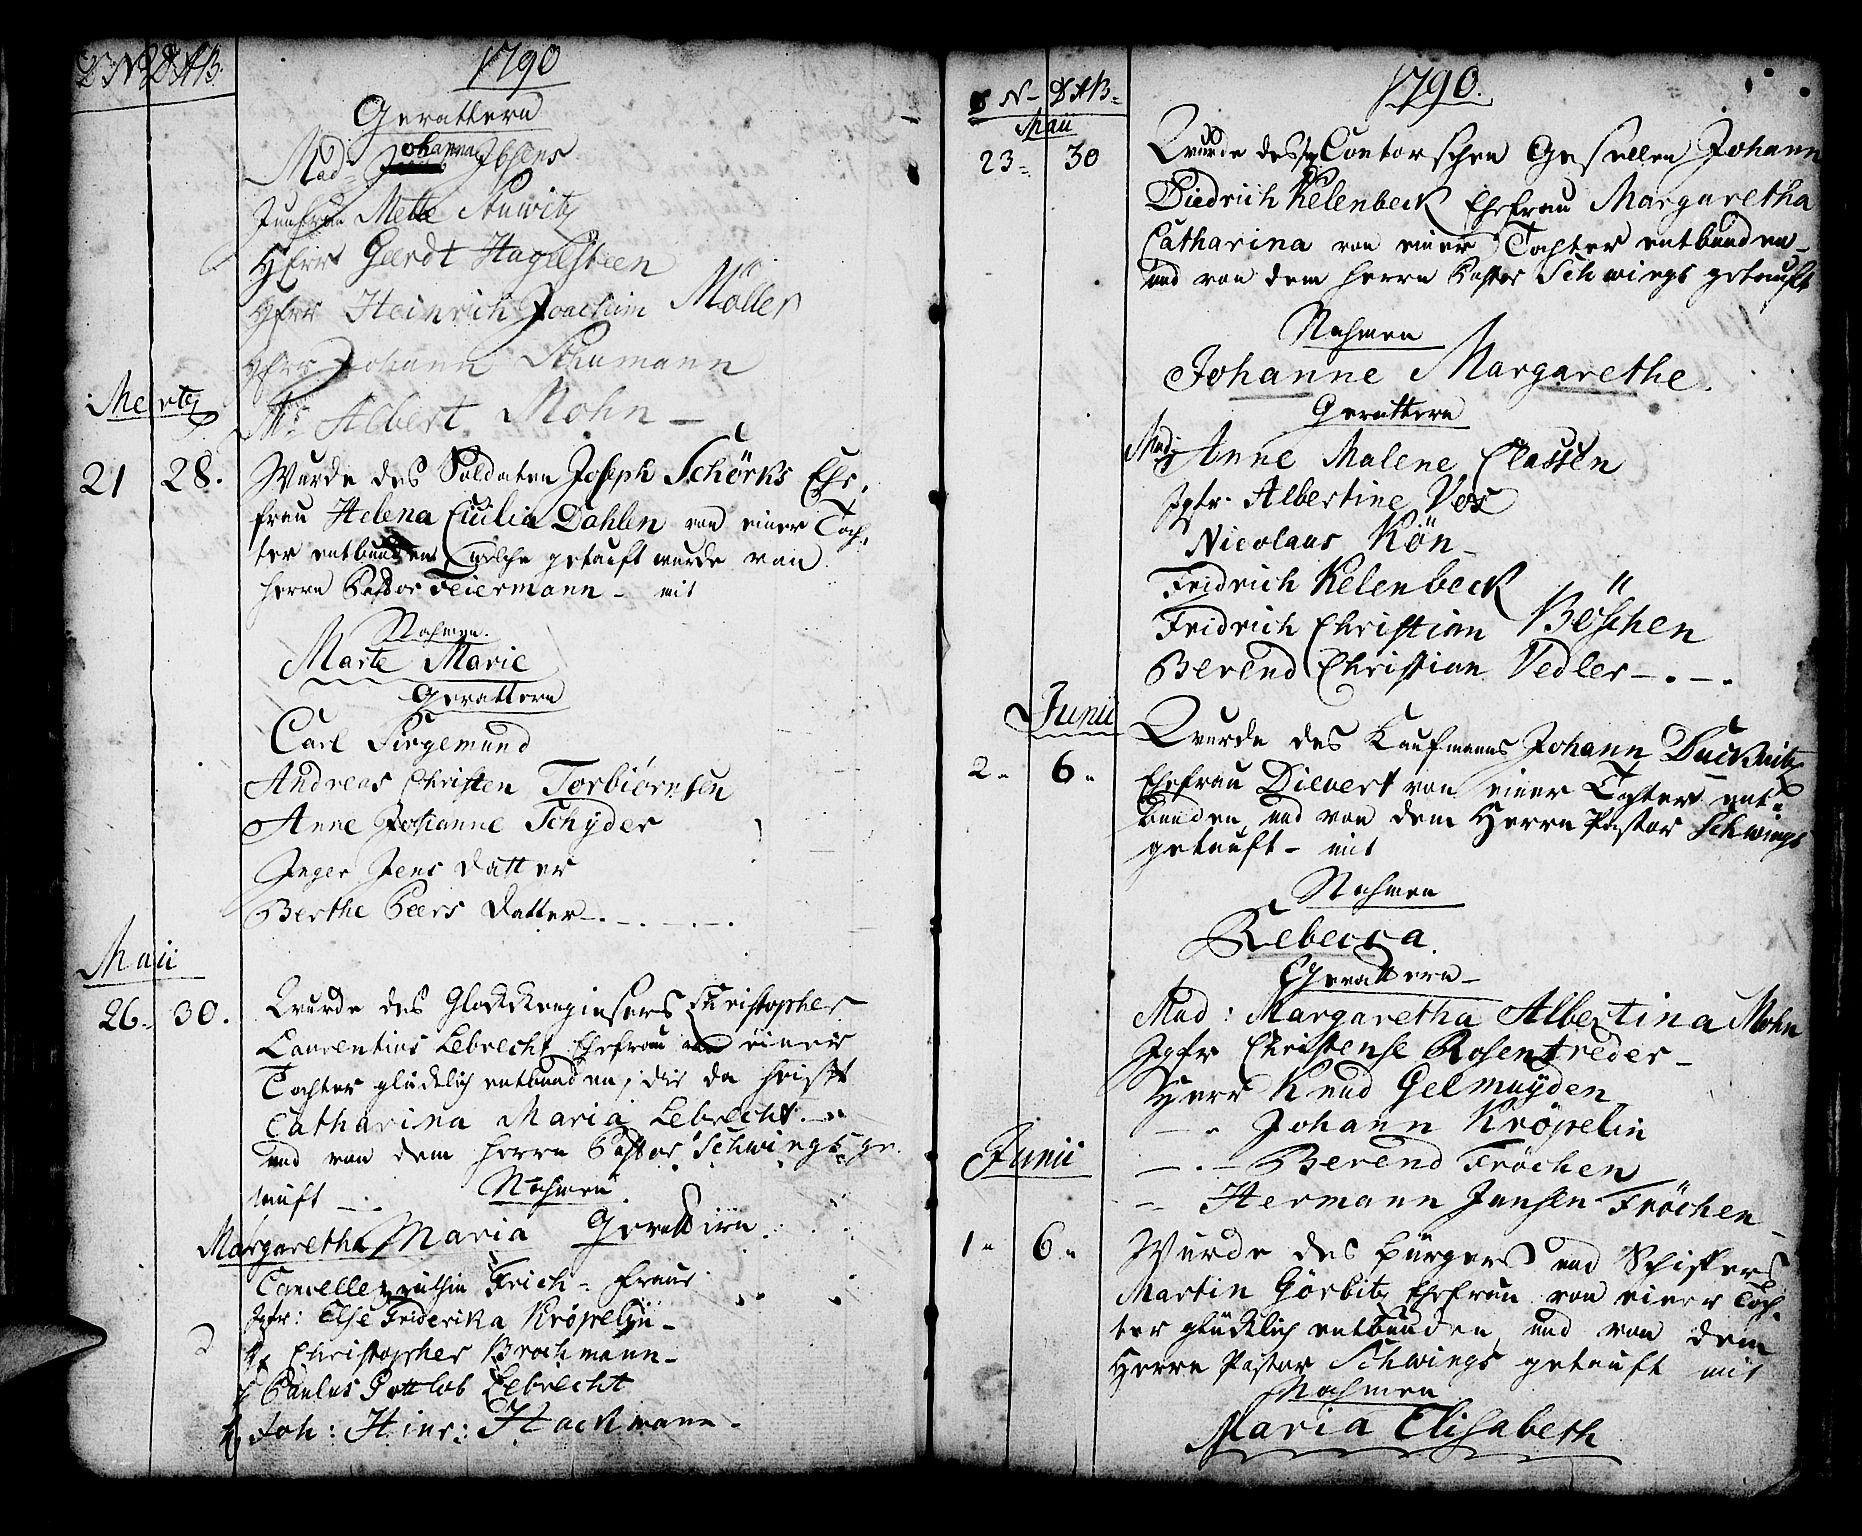 D N D A B.
1790
Gevattern
Mad: Johanna Ibsens
Junfrau Mette
Herr Geerdt Hagelsteen
Herr Heinrich Joachim Möller
Herr Johann Schumann
Mr Albert Mohn –
Mertz
21 28. Wurde des Soldaten Joseph Schörks Ehe,
frau Helena Cicilia Dahlen von einer Toch,
ter entbunden welche getauft wurde von
Herrn Pastor Feiermann – mit
Nahmen.
Marte Marie
Gevattern
Carl Siegemund
Andreas Christen Torbiörnsen
Anne Johanne Schÿder
Inger Jens datter
Berthe Peers datter –.–.–.–.
Maii
26. 30. Wurde des Glockkengiesers Christopher
Laurentius Lebrecht Ehefrau von einer
Tochter glücklich entbunden, die da heisst
Catharina Maria Lebrecht.
und von dem Herrn Pastor Schwings ge.
tauft –. Nahmen
Margaretha Maria Gevattern.
Cancelley räthin Frich - Frau
Jgfr: Else Friderika Kröpelÿn –
Hr Christopher Brochmann –
Paulus Gottlob Lebrecht
Joh: Hinr: Hackmann –
1790.
N – D A B =
Maii
23 = 30 Wurde des Contorschen Gesellen Johann
Diedrich Kelenbeck Ehefrau Margaretha
Catharina von einer Tochter entbunden –
und von dem Herrn Pastor Schwings getauft
Nahmen
Johanne Margarethe.
Gevattern
Mad: Anne Malene Classen
Jgfr. Albertine Vos
Nicolaus Kön
Fridrich Kelenbeck
Fridrich Christian Böschen
Berend Christian Vedler –.–.
Junii
2 = 6 = Wurde des Kaufmanns Johann Duckwitz
Ehefrau Dievert von einer Tochter ent=
bunden und von dem Herrn Pastor Schwings
getauft – mit
Nahmen
Rebecca.
Gevattern –
Mad: Margaretha Albertina Mohn
Jgfr Christense Rosentreder –
Herr Knud Gelmuÿden
– . Johann Kröpelin
– . – Berend Fröchen
– Hermann Jansen Fröchen –
Junii
1 = 6 = Wurde des bürgers und Schiffers
Martin Görbitz Ehefrau von einer Toch,
ter glücklich entbunden, und von dem
Herrn Pastor Schwings getauft mit
Nahmen
Maria Elisabeth